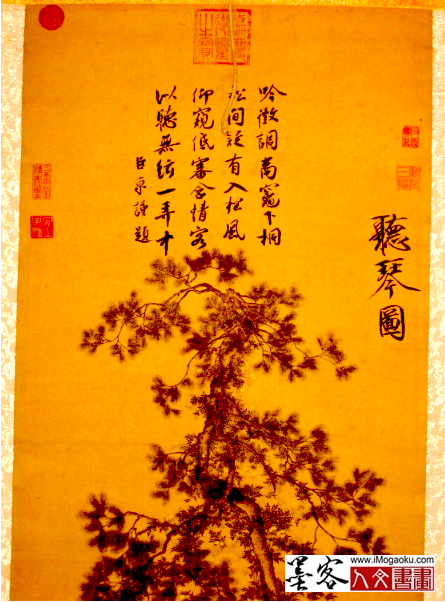 聽琴圖
吟徵調商竈下桐
松間疑有入松風
仰窺低審含情客
以聽無絃一弄中
臣京謹題
墨客
www.iMogaoku.com
人文書畫